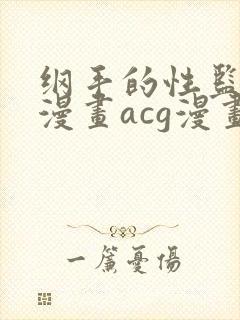 纲手的性监
漫畫acg漫畫
一簾憂傷